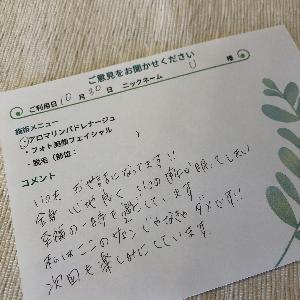 ご意見をお聞かせください
ご利用日 10 月 30 日 ニックネーム U 様
施術メニュー
・アロマリンパドレナージュ
・フォト美顔フェイシャル
・脱毛(部位: )
コメント
いつも お世話になってます!!
全身 心地良く いつの間にか眠ってしまい
至福の一時を過ごしています。
私はここのサロンじゃなきゃダメです!!
次回も楽しみにしています。